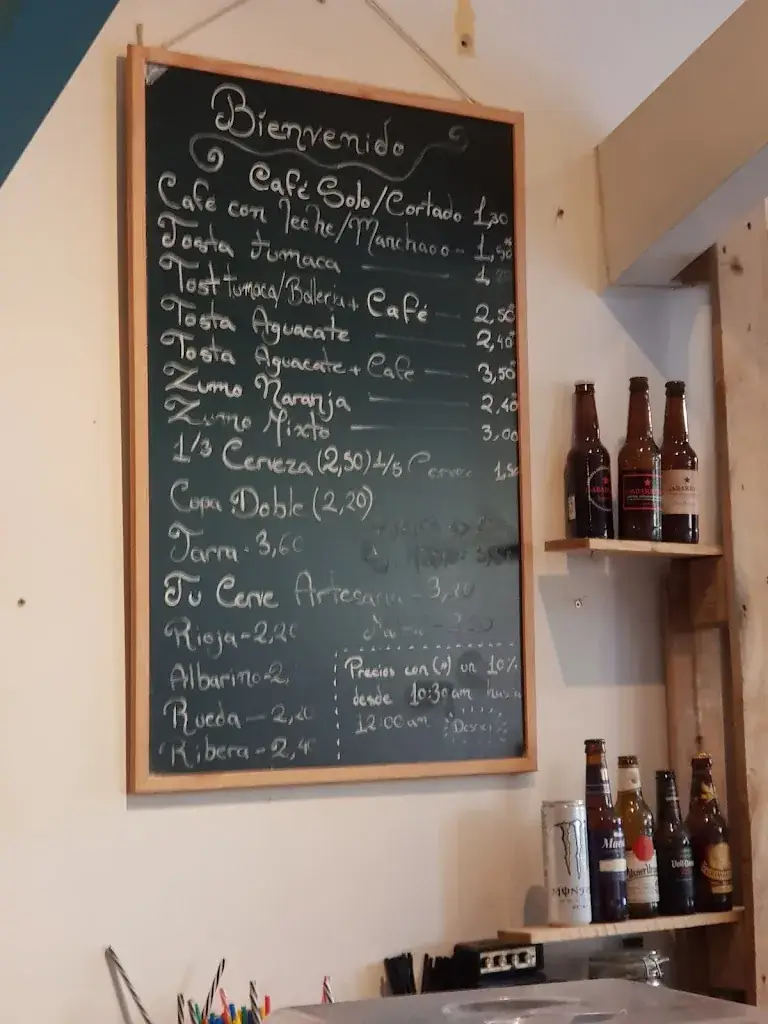 Bienvenido
Café Solo/Cortado 1,30
Café con leche/Manchaoo - 1,50*
Tosta tumaca 1,
Tost tumaca/Bolleria + Café 2,50*
Tosta Aguacate 2,40*
Tosta Aguacate + Café 3,50*
Zumo Naranja 2,40
Zumo Mixto 3,00
1/3 Cerveza (2,50) 1/5 Cerve 1,50
Copa Doble (2,20)
Jarra - 3,60
Tu Cerve Artesana - 3,20
Rioja - 2,20
Albarino - 2,
Rueda - 2,20
Ribera - 2,4
Precios con (*) un 10%
desde 10:30am hasta
12:00am
MONS